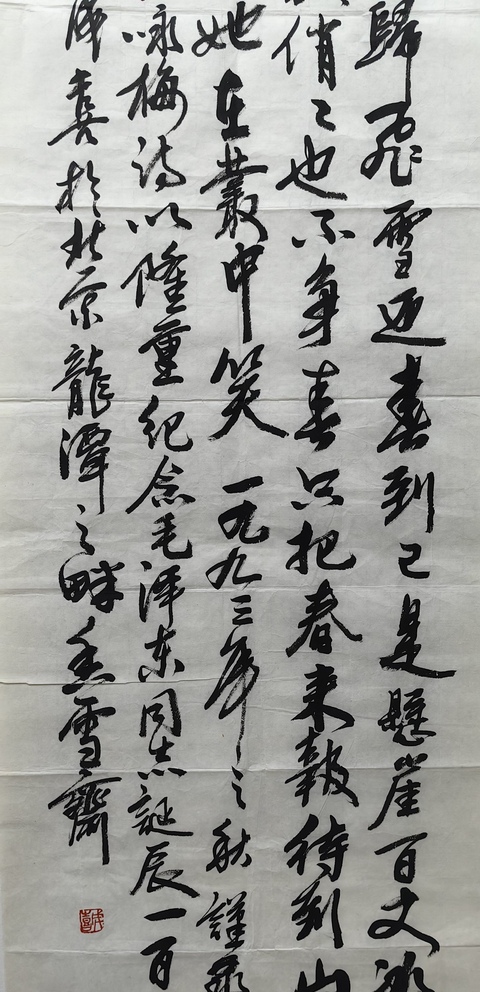 歸飛雪迎春到已是懸崖百丈冰
俏〻也不爭春只把春來報待到山
她在叢中笑 一九九三年之秋謹錄
咏梅詩以隆重纪念毛泽东同志誕辰一百
喜於北京龍潭之畔香雪齋